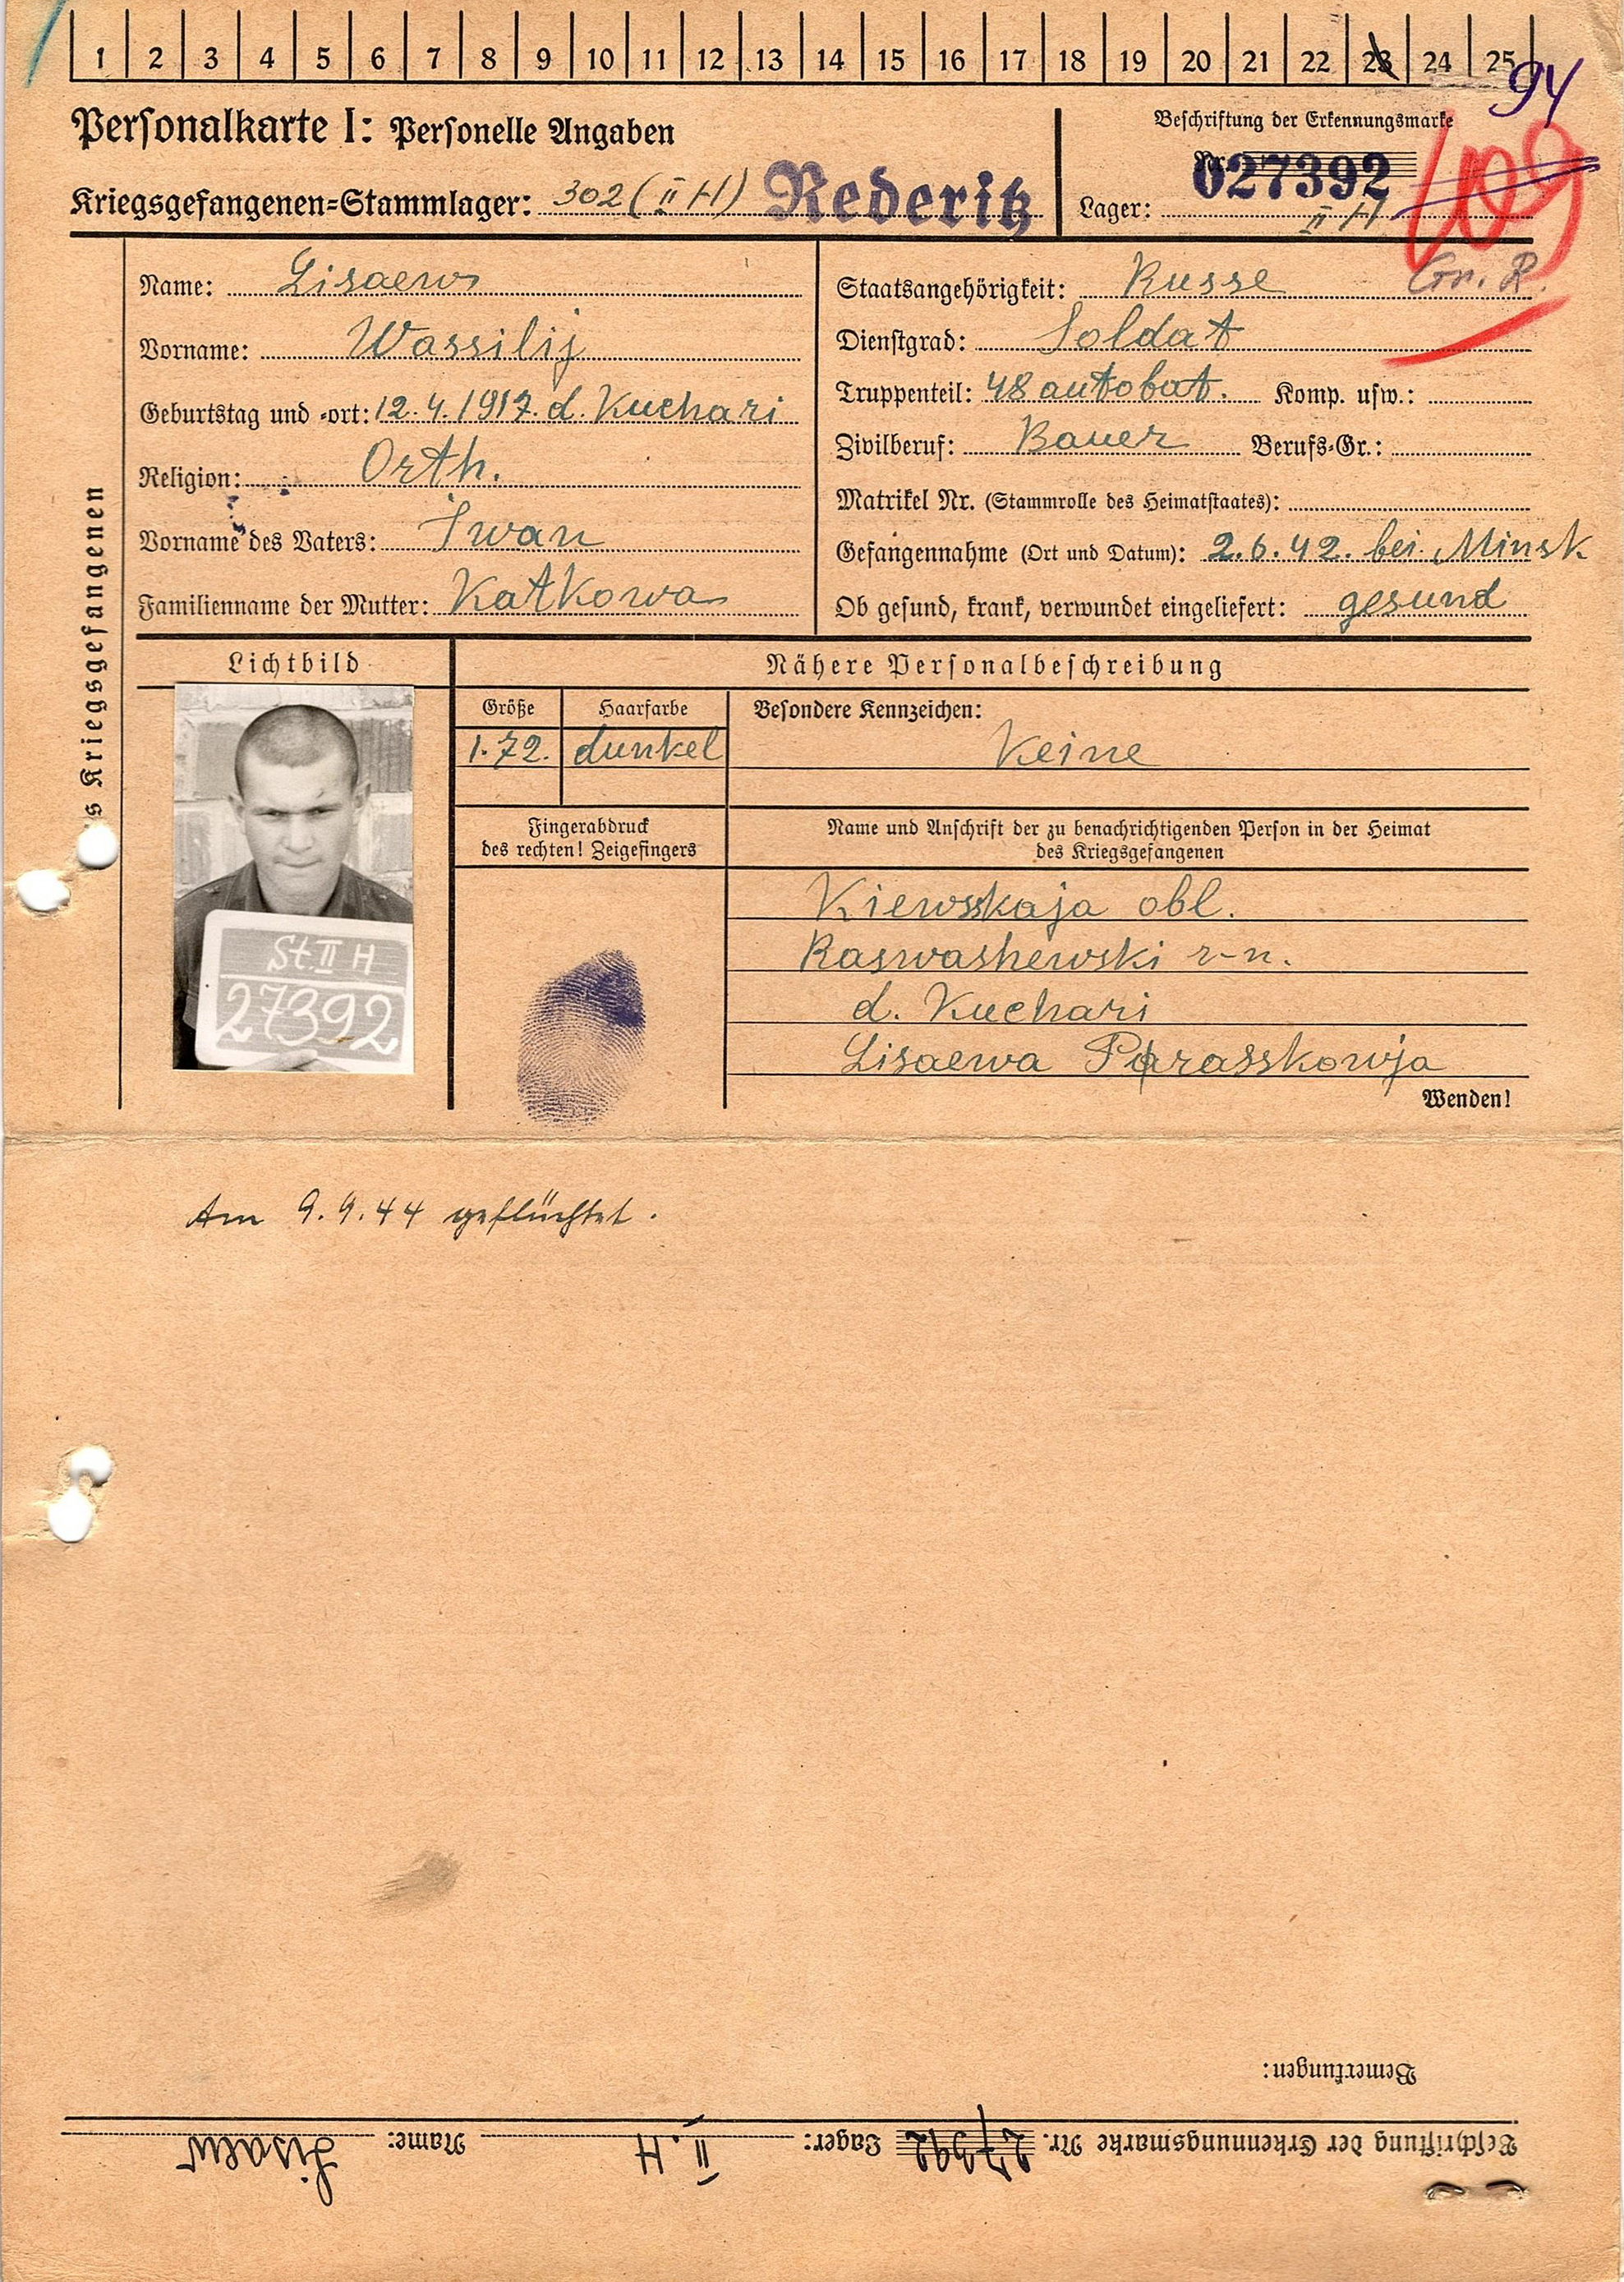 1 2 3 4 5 6 7 8 9 10 11 12 13 14 15 16 17 18 19 20 21 22 23 24 25
94
Personalkarte I: Personelle Angaben
Kriegsgefangenen-Stammlager: 302 (II H) Rederitz
Beschriftung der Erkennungsmarke
Nr. 027392
Lager: II H
109
Gr. R.
s Kriegsgefangenen
Name: Lisaew
Vorname: Wassilij
Geburtstag und -ort: 12.4.1917. d. Kuchari
Religion: Orth.
Vorname des Vaters: Iwan
Familienname der Mutter: Katkowa
Staatsangehörigkeit: Russe
Dienstgrad: Soldat
Truppenteil: 48 autobat. Komp. usw.:
Zivilberuf: Bauer Berufs-Gr.:
Matrikel Nr. (Stammrolle des Heimatstaates):
Gefangennahme (Ort und Datum): 2.6.42. bei Minsk
Ob gesund, krank, verwundet eingeliefert: gesund
Lichtbild
St. II H
27392
Nähere Personalbeschreibung
Größe Haarfarbe
1.72. dunkel
Besondere Kennzeichen:
Keine
Fingerabdruck
des rechten! Zeigefingers
Name und Anschrift der zu benachrichtigenden Person in der Heimat
des Kriegsgefangenen
Kiewskaja obl.
Raswashewski r-n.
d. Kuchari
Lisaewa Parasskowja
Wenden!
Am 9.9.44 geflüchtet.
Bemerkungen:
Beschriftung der Erkennungsmarke Nr. 27392 Lager: II.H Name: Lisaew